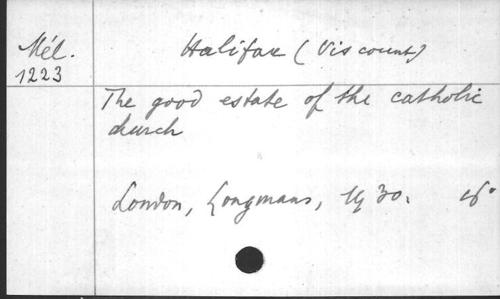 Mél.
1223
Halifax (Viscount)
The good estate of the catholic
church
London, Longmans, 1930. 16°